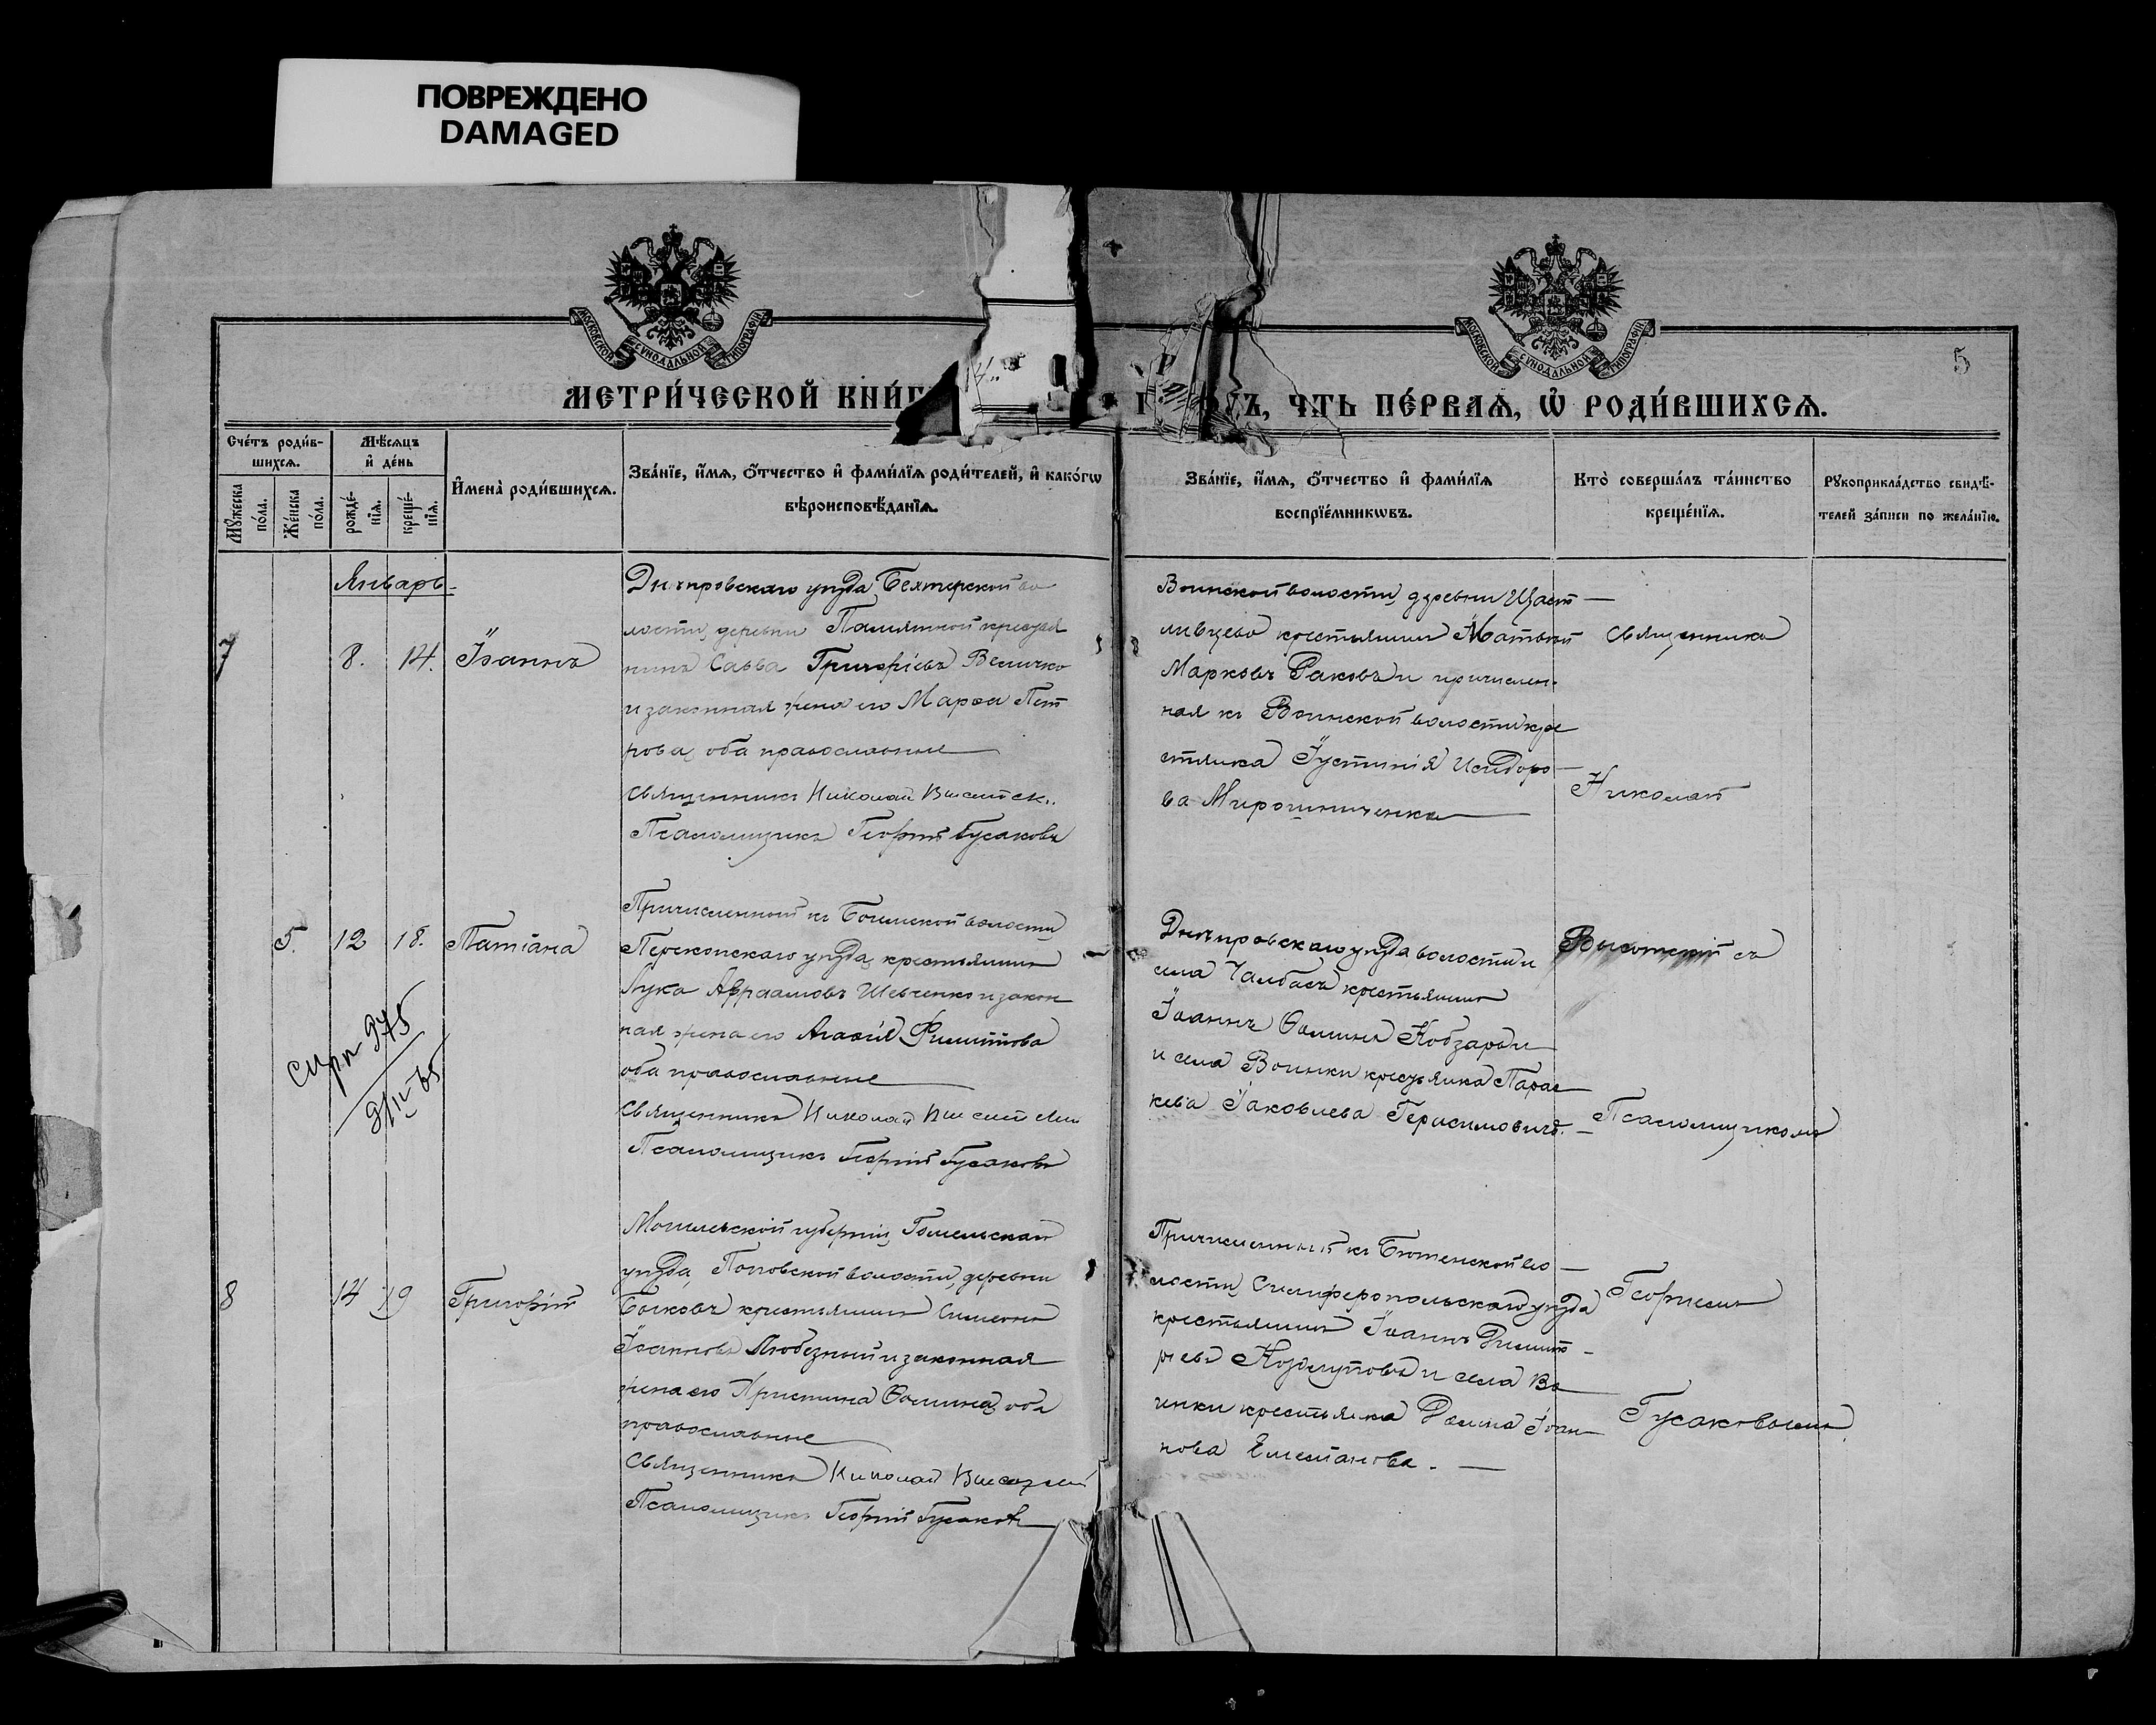 ПОВРЕЖДЕНО
DAMAGED
МОСКОВСКОЙ СѴНОДАЛЬНОЙ ТИПОГРАФІИ
МОСКОВСКОЙ СѴНОДАЛЬНОЙ ТИПОГРАФІИ
5
МЕТРИ́ЧЕСКОЙ КНИ́Г
Ъ, Ч.ТЬ ПЕ́РВАѦ, Ѽ РОДИ́ВШИХСѦ.
Сче́тъ роди́в-
шихсѧ.
Мѣ́сѧцъ
и҆ де́нь
Мꙋ́жеска
по́ла.
Же́нска
по́ла.
рожде́-
нїѧ.
креще́-
нїѧ.
И҆мена̀ роди́вшихсѧ.
Зва́нїе, и҆́мѧ, ѻ҆́тчество и҆ фами́лїѧ роди́телей, и҆ како́гѡ
вѣроисповѣ́данїѧ.
Зва́нїе, и҆́мѧ, ѻ҆́тчество и҆ фами́лїѧ
воспрїе́мникѡвъ.
Кто̀ соверша́лъ та́инство
креще́нїѧ.
Рꙋкоприкла́дство свидѣ́-
телей за́писи по жела́нїю.
Январь
7
8. 14. Іоаннъ
Днѣпровскаго уѣзда, Бехтерской во
лости, деревни Памятной крестья
нинъ Савва Григоріевъ Величко
и законная жена его Марѳа Пет
рова, оба православные
Священникъ Николай
Псаломщикъ Георгій Гусаковъ
Воинской волости, деревни Щаст
ливцево крестьянинъ Матвей
Марковъ Раковъ и причислен-
ная къ Воинской волости кре
стьянка Іустинія Исидоро
ва Мирошниченко
Священникъ
Николай
5. 12 18. Татіана
Причисленный къ волости,
Перекопскаго уѣзда, крестьянинъ
Лука Авраамовъ Шевченко и закон
ная жена его Агаѳія Филиппова
оба православные
Священникъ Николай
Псаломщикъ Георгій Гусаковъ
Днѣпровскаго уѣзда волости и
села Чалбасъ крестьянинъ
Іоаннъ Ѳоминъ Кобзарь и
и села Воинки крестьянка Парас
кева Іаковлева Герасимовичъ.
Высотскій съ
Псаломщикомъ
975
8
14 19 Григорій
Могилевской губерніи, Гомельскаго
уѣзда, Поповской волости, деревни
крестьянинъ Симеонъ
Іоанновъ Любезный и законная
жена его Христина Ѳомина, оба
православные
Священникъ Николай Высотскій
Псаломщикъ Георгій Гусаковъ
Причисленный къ во
лости, Симферопольскаго уѣзда
крестьянинъ Іоаннъ Димит
ріевъ и села Во
инки крестьянка Іоан
нова Емельянова.
Георгіемъ
Гусаковымъ.